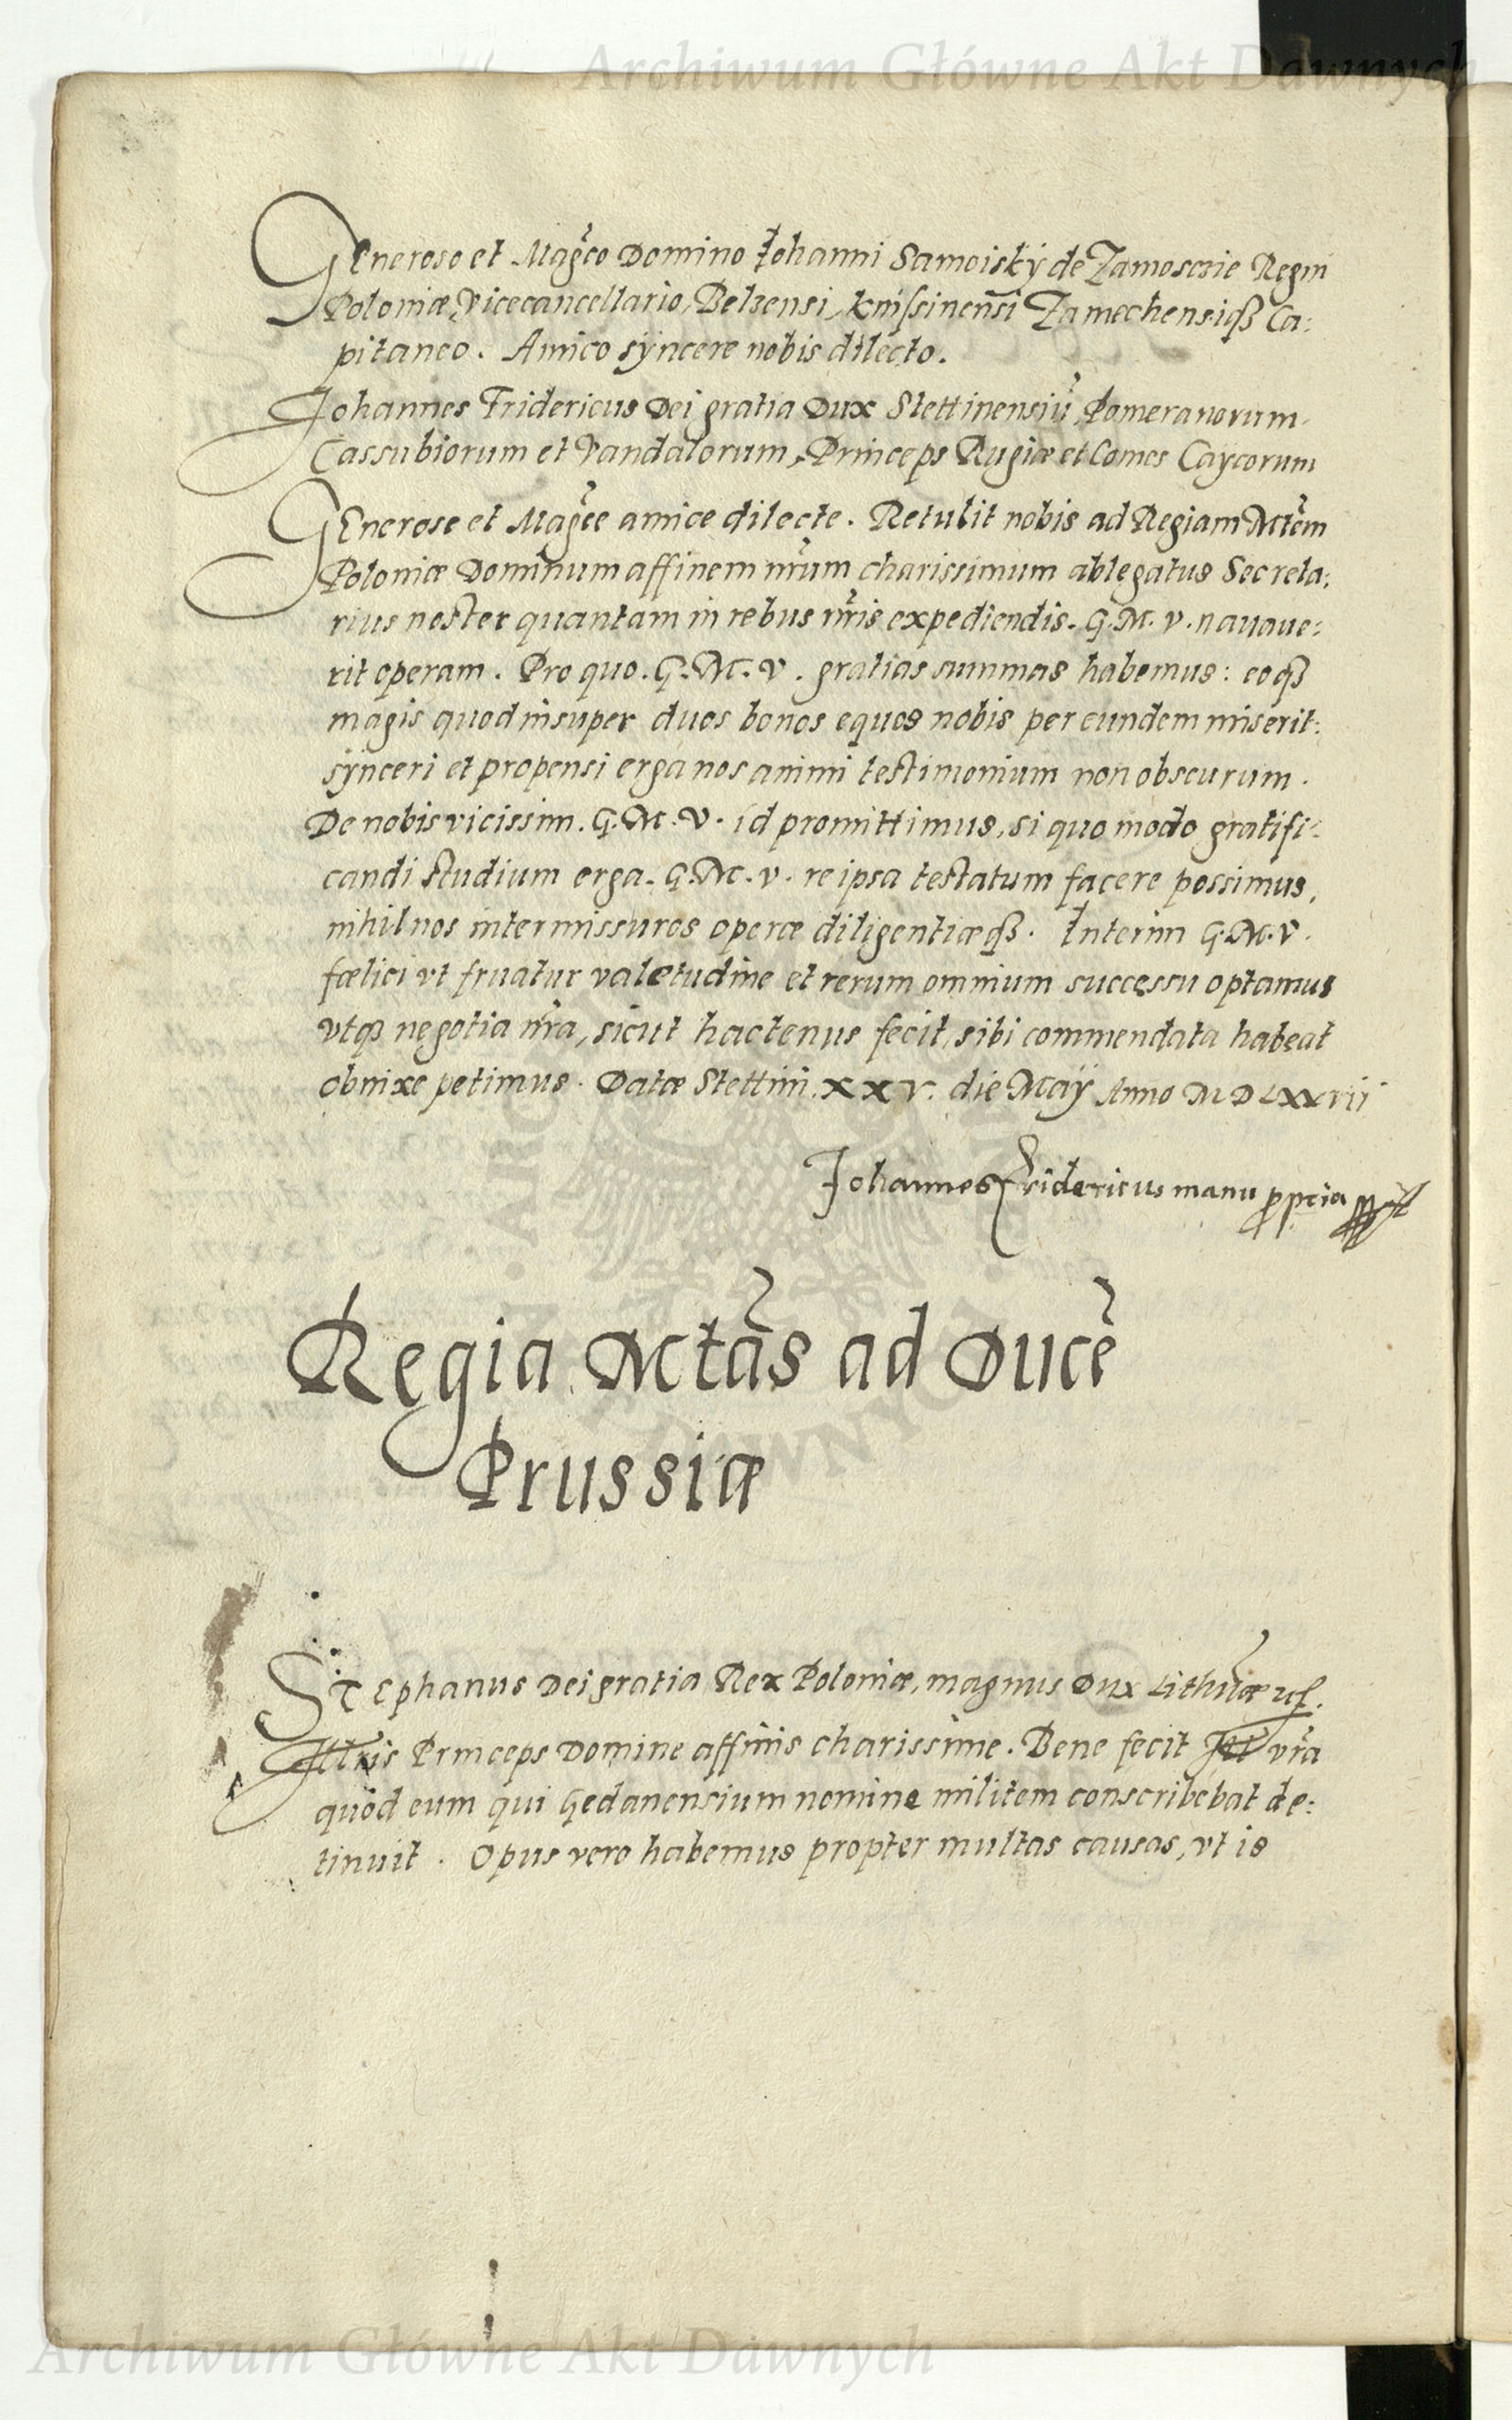 Archiwum Główne Akt Dawnych
GEneroso et Mag̃co Domino Iohanni Samoisky de Zamosczie Regni
Poloniæ Vicecancellario, Belzensi, Knisſinensi Zamechensiq₃ Ca:
pitaneo. Amico syncere nobis dilecto.
Johannes Fridericus Dei gratia Dux Stettinensiũ Pomeranorum
Cassubiorum et Vandalorum, Princeps Rugiæ et Comes Caycorum
GEnerose et Mag̃ce amice dilecte. Retulit nobis ad Regiam Mtẽm
Poloniæ Dominum affinem nr̃um charissimum ablegatus Secreta:
rius noster quantam in rebus nr̃is expediendis. G.M.V. nauaue:
rit operam. Pro quo. G.M.V. gratias summas habemus: eoq₃
magis quod insuper duos bonos equos nobis per eundem miserit:
synceri et propensi erga nos animi testimonium non obscurum.
De nobis vicissim. G.M.V. id promittimus, si quo modo gratifi:
candi studium erga. G.M.V. re ipsa testatum facere possimus,
nihil nos intermissuros operæ diligentiæq₃. Interim G.M.V.
fœlici vt fruatur valetudine et rerum omnium successu optamus
vtq₃ negotia nr̃a, sicut hactenus fecit, sibi commendata habeat
obnixe petimus. Datæ Stettini. XXV. die Maÿ Anno MDLXXVII
Johannes Fridericus manu ꝓpria
Regia Mtãs ad Ducẽ
Prussiæ
STephanus Dei gratia Rex Poloniæ, magnus Dux Lithũæ
Illr̃is Princeps Domine affinis charissime. Bene fecit Ill vr̃a
quod eum qui Gedanensium nomine militem conscribebat de:
tinuit. Opus vero habemus propter multas causas, vt is
Archiwum Główne Akt Dawnych